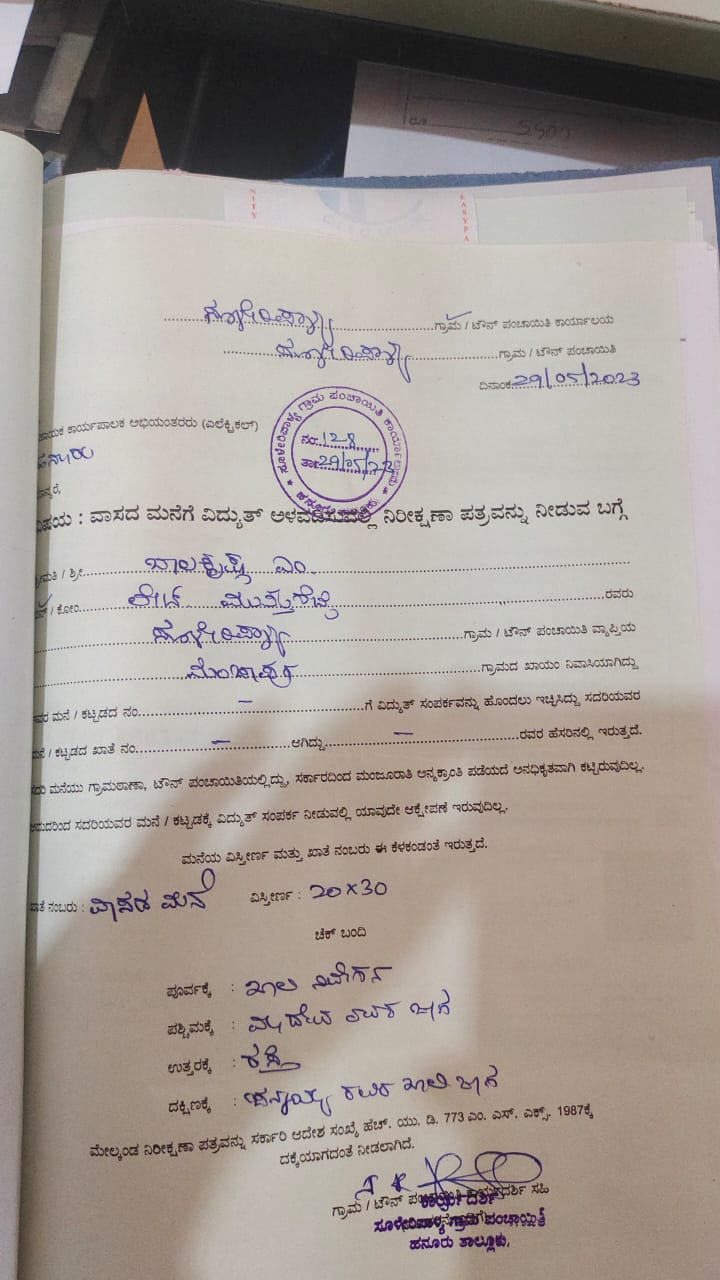 ರೂ
NITY
EASYPA
ಸೂಳೇರಿಪಾಳ್ಯ ಗ್ರಾಮ / ಟೌನ್ ಪಂಚಾಯಿತಿ ಕಾರ್ಯಾಲಯ
ಸೂಳೇರಿಪಾಳ್ಯ ಗ್ರಾಮ / ಟೌನ್ ಪಂಚಾಯಿತಿ
ದಿನಾಂಕ 29/05/2023
ಸೂಳೇರಿಪಾಳ್ಯ ಗ್ರಾಮ ಪಂಚಾಯಿತಿ ಕಾರ್ಯಾಲಯ
ನಂ: 128
ತಾ: 29/05/23
ಹನೂರು ತಾಲ್ಲೂಕು
ಕಾರ್ಯಪಾಲಕ ಅಭಿಯಂತರರು (ಎಲೆಕ್ಟ್ರಿಕಲ್)
ಹನೂರು
ವಿಷಯ : ವಾಸದ ಮನೆಗೆ ವಿದ್ಯುತ್ ಅಳವಡಿಸುವಲ್ಲಿ ನಿರೀಕ್ಷಣಾ ಪತ್ರವನ್ನು ನೀಡುವ ಬಗ್ಗೆ
/ ಶ್ರೀ ಬಾಲಕೃಷ್ಣ ಎಂ
/ ಕೋಂ ಲೇಟ್ ಮುತ್ತುಶೆಟ್ಟಿ ರವರು
ಸೂಳೇರಿಪಾಳ್ಯ ಗ್ರಾಮ / ಟೌನ್ ಪಂಚಾಯಿತಿ ವ್ಯಾಪ್ತಿಯ
ಗ್ರಾಮದ ಖಾಯಂ ನಿವಾಸಿಯಾಗಿದ್ದು
ಮನೆ / ಕಟ್ಟಡದ ನಂ. – ಗೆ ವಿದ್ಯುತ್ ಸಂಪರ್ಕವನ್ನು ಹೊಂದಲು ಇಚ್ಛಿಸಿದ್ದು ಸದರಿಯವರ
ಮನೆ / ಕಟ್ಟಡದ ಖಾತೆ ನಂ. – ಆಗಿದ್ದು – ರವರ ಹೆಸರಿನಲ್ಲಿ ಇರುತ್ತದೆ.
ಸದರಿ ಮನೆಯು ಗ್ರಾಮಠಾಣಾ, ಟೌನ್ ಪಂಚಾಯಿತಿಯಲ್ಲಿದ್ದು, ಸರ್ಕಾರದಿಂದ ಮಂಜೂರಾತಿ ಅನ್ಯಕ್ರಾಂತಿ ಪಡೆಯದೆ ಅನಧಿಕೃತವಾಗಿ ಕಟ್ಟಿರುವುದಿಲ್ಲ.
ಆದುದರಿಂದ ಸದರಿಯವರ ಮನೆ / ಕಟ್ಟಡಕ್ಕೆ ವಿದ್ಯುತ್ ಸಂಪರ್ಕ ನೀಡುವಲ್ಲಿ ಯಾವುದೇ ಆಕ್ಷೇಪಣೆ ಇರುವುದಿಲ್ಲ.
ಮನೆಯ ವಿಸ್ತೀರ್ಣ ಮತ್ತು ಖಾತೆ ನಂಬರು ಈ ಕೆಳಕಂಡಂತೆ ಇರುತ್ತದೆ.
ಖಾತೆ ನಂಬರು : ವಾಸದ ಮನೆ ವಿಸ್ತೀರ್ಣ : 20×30
ಚೆಕ್ ಬಂದಿ
ಪೂರ್ವಕ್ಕೆ : ಖಾಲಿ ನಿವೇಶನ
ಪಶ್ಚಿಮಕ್ಕೆ : ಮಹದೇವ ರವರ ಜಾಗ
ಉತ್ತರಕ್ಕೆ : ರಸ್ತೆ
ದಕ್ಷಿಣಕ್ಕೆ : ರವರ ಖಾಲಿ ಜಾಗ
ಮೇಲ್ಕಂಡ ನಿರೀಕ್ಷಣಾ ಪತ್ರವನ್ನು ಸರ್ಕಾರಿ ಆದೇಶ ಸಂಖ್ಯೆ ಹೆಚ್. ಯು. ಡಿ. 773 ಎಂ. ಎಸ್. ಎಕ್ಸ್. 1987ಕ್ಕೆ
ದಕ್ಕೆಯಾಗದಂತೆ ನೀಡಲಾಗಿದೆ.
ಗ್ರಾಮ / ಟೌನ್ ಪಂಚಾಯಿತಿ ಕಾರ್ಯದರ್ಶಿ ಸಹಿ
ಕಾರ್ಯದರ್ಶಿ
ಸೂಳೇರಿಪಾಳ್ಯ ಗ್ರಾಮ ಪಂಚಾಯಿತಿ
ಹನೂರು ತಾಲ್ಲೂಕು.